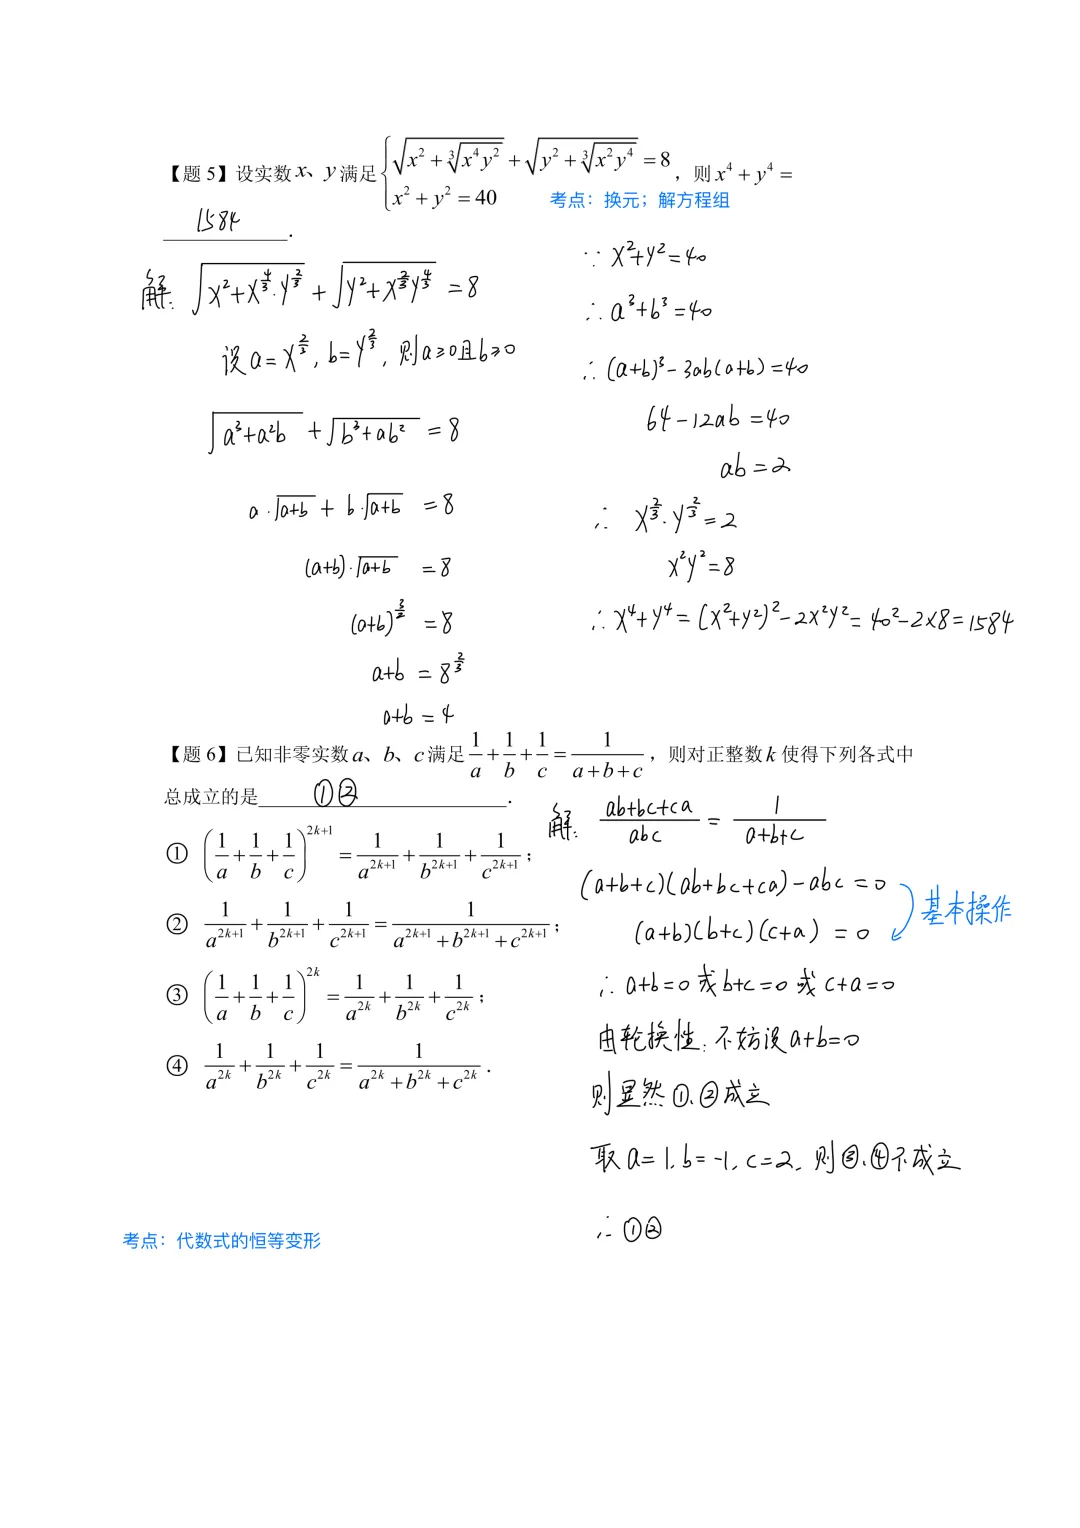 【题 5】设实数 x、y 满足 {√(x²+∛(x⁴y²)) + √(y²+∛(x²y⁴)) = 8
x²+y²=40 ,则 x⁴+y⁴=
考点：换元；解方程组
1584.
解: √(x²+x^(4/3)·y^(2/3)) + √(y²+x^(2/3)y^(4/3)) = 8
设 a=x^(2/3), b=y^(2/3), 则 a≥0且b≥0
√(a³+a²b) + √(b³+ab²) = 8
a·√(a+b) + b·√(a+b) = 8
(a+b)·√(a+b) = 8
(a+b)^(3/2) = 8
a+b = 8^(2/3)
a+b = 4
∵ x²+y²=40
∴ a³+b³=40
∴ (a+b)³-3ab(a+b)=40
64-12ab=40
ab=2
∴ x^(2/3)·y^(2/3)=2
x²y²=8
∴ x⁴+y⁴=(x²+y²)²-2x²y²=40²-2×8=1584
【题 6】已知非零实数 a、b、c 满足 1/a+1/b+1/c=1/(a+b+c)，则对正整数 k 使得下列各式中
总成立的是 ①② .
① (1/a+1/b+1/c)^(2k+1) = 1/a^(2k+1) + 1/b^(2k+1) + 1/c^(2k+1)；
② 1/a^(2k+1) + 1/b^(2k+1) + 1/c^(2k+1) = 1/(a^(2k+1)+b^(2k+1)+c^(2k+1))；
③ (1/a+1/b+1/c)^(2k) = 1/a^(2k) + 1/b^(2k) + 1/c^(2k)；
④ 1/a^(2k) + 1/b^(2k) + 1/c^(2k) = 1/(a^(2k)+b^(2k)+c^(2k)).
解: (ab+bc+ca)/abc = 1/(a+b+c)
(a+b+c)(ab+bc+ca)-abc=0
基本操作
(a+b)(b+c)(c+a)=0
∴ a+b=0 或 b+c=0 或 c+a=0
由轮换性: 不妨设 a+b=0
则显然①、②成立
取 a=1, b=-1, c=2, 则③、④不成立
∴ ①②
考点：代数式的恒等变形